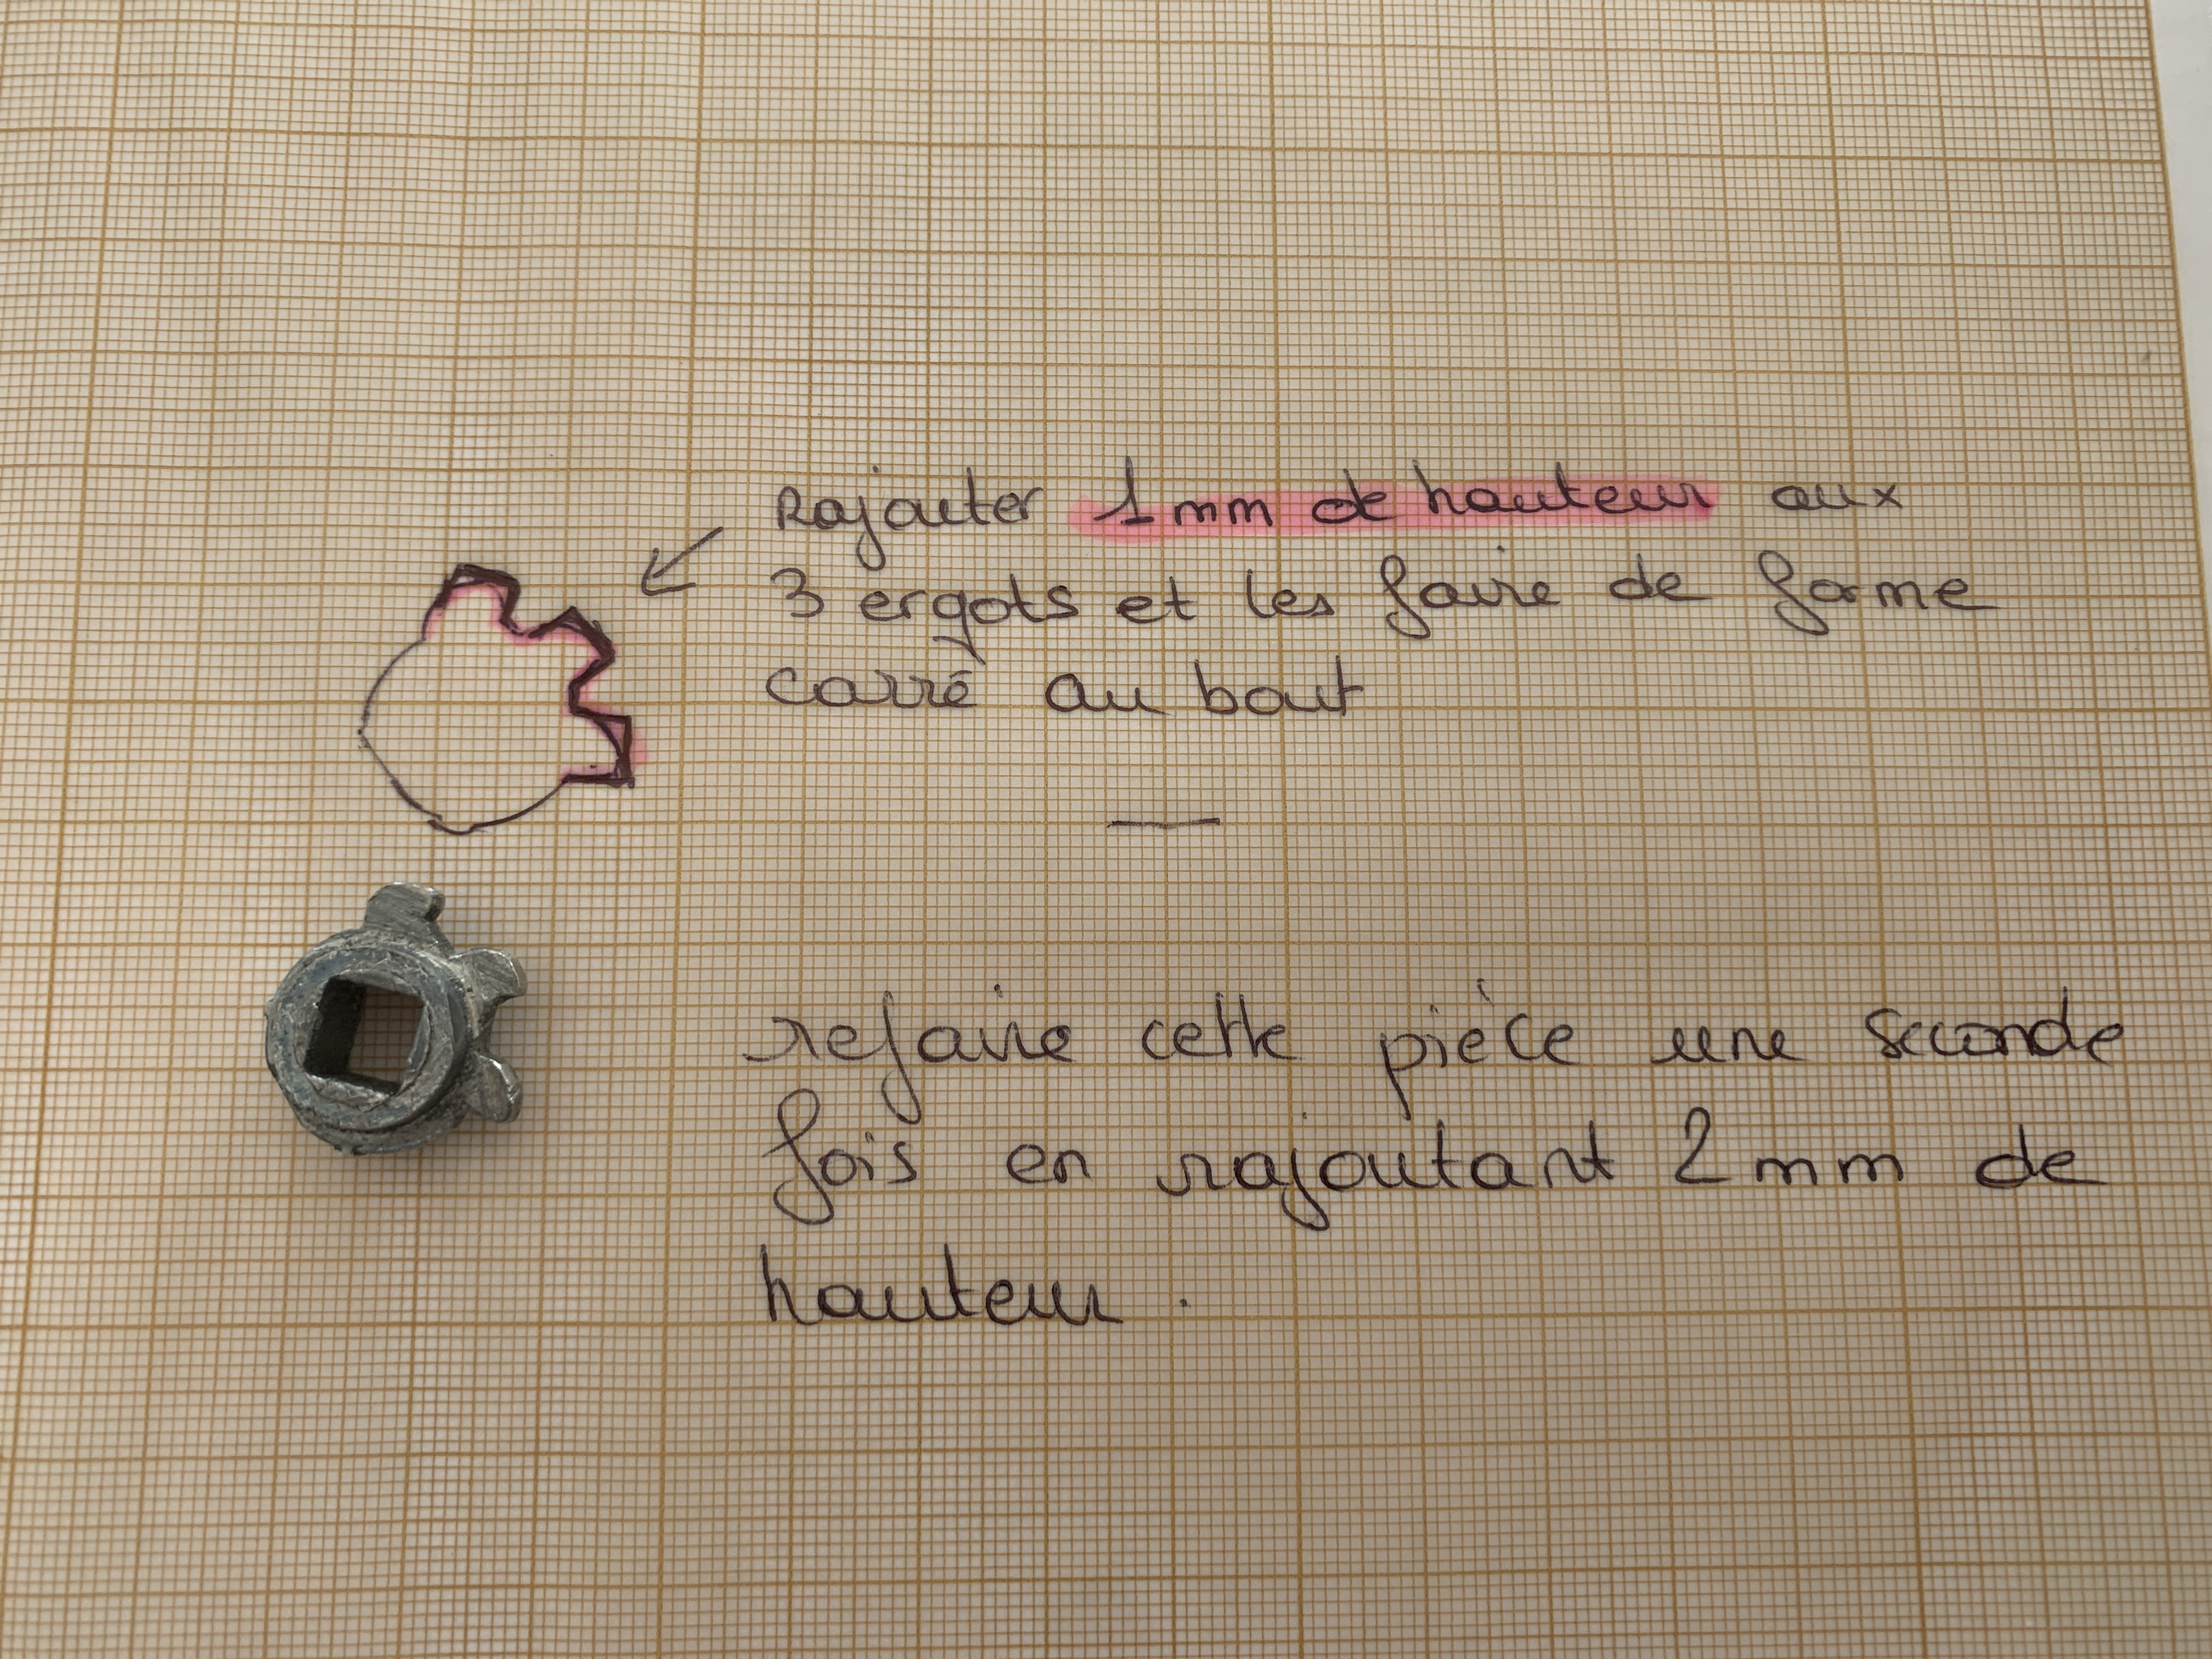 Rajouter 1 mm de hauteur aux
3 ergots et les faire de forme
carré au bout
refaire cette pièce une seconde
fois en rajoutant 2 mm de
hauteur.